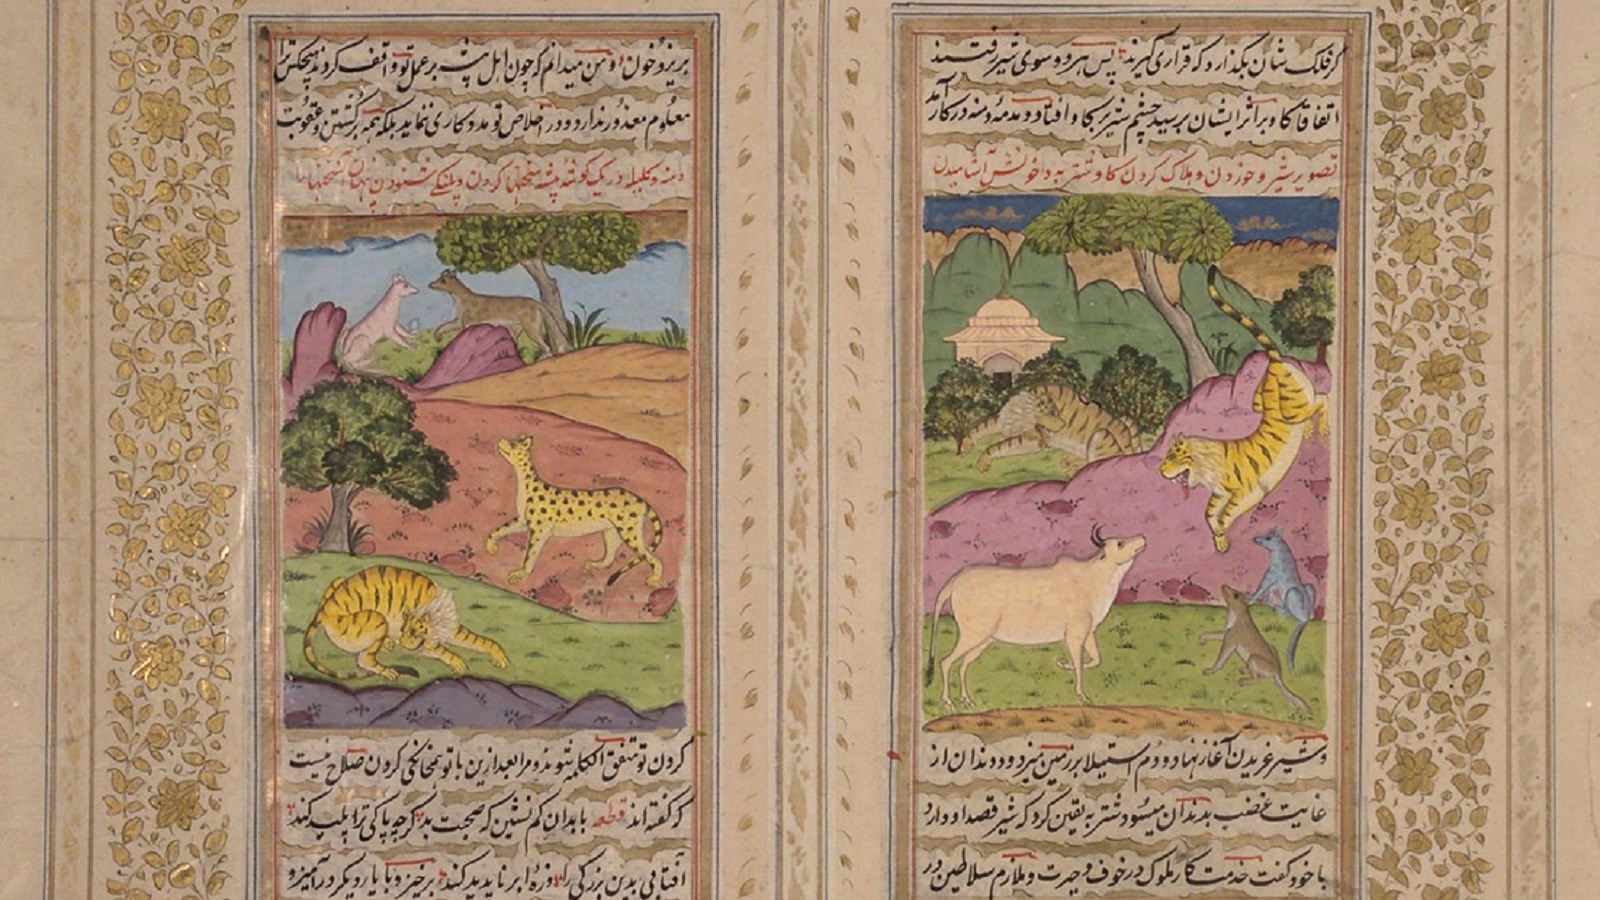 کر فلک شان بگذارد که قراری گیرند پس هر دو سوی شیر رفتند
اتفاقا گاو بر اثر ایشان برسید چشم شیر بر گاو افتاد و دمدمه دمنه در کار آمد
تصویر شیر و خوردن و هلاک کردن گاو شتربه و خونش آشامیدن
و شیر غریدن آغاز نهاد و دم استیلا بر زمین میزد و دندان از
غایت غضب بدندان میسود شتربه یقین کرد که شیر قصد او دارد
با خود گفت خدمتکار ملوک در خوف و حیرت و ملازم سلاطین در
بریزد خون او من میدانم که چون اهل بر عمل تو واقف گردند هیچکس ترا
معلوم معذور ندارد و در اخلاص تو مددکاری ننماید بلکه همه بر کشتن و عقوبت
دمنه و کلیله در یک گوشه نشسته سخنها کردن و پلنگ شنودن پنهان سخنها را
کردن تو متفق الکلمه شوند و مرا بعد ازین با تو همخانگی کردن صلاح نیست
که گفته اند قطعه با بدان کم نشین که صحبت بد گرچه پاکی ترا پلید کند
آفتابی بدین بزرگی را ذره ابر ناپدید کند برخیز و با یار دیگر در آمیز و